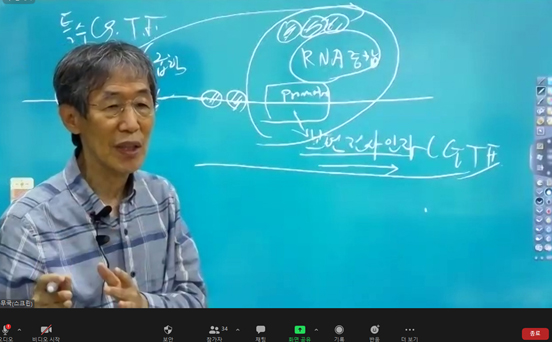 특수 (S.T.F
결합
RNA중합
Promoter
보편전사인자 (G T F
푸국(스크린)
오디오
비디오 시작
보안
참가자
34
채팅
화면 공유
기록
반응
더 보기
종료